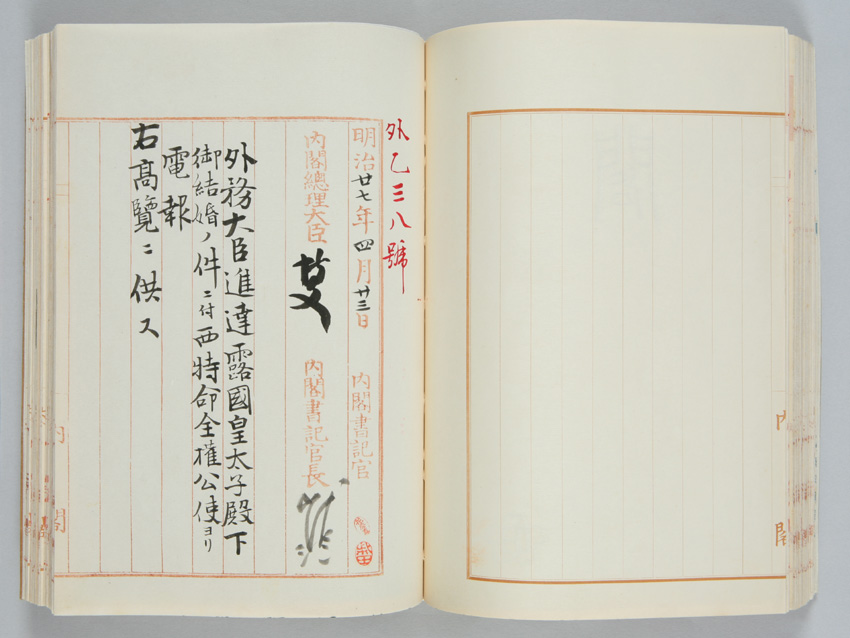 外乙三八號
明治廿七年四月廿三日
内閣書記官
内閣總理大臣
内閣書記官長
外務大臣進達露國皇太子殿下
御結婚ノ件ニ付西特命全權公使ヨリ
電報
右高覽ニ供ス
内閣
内閣